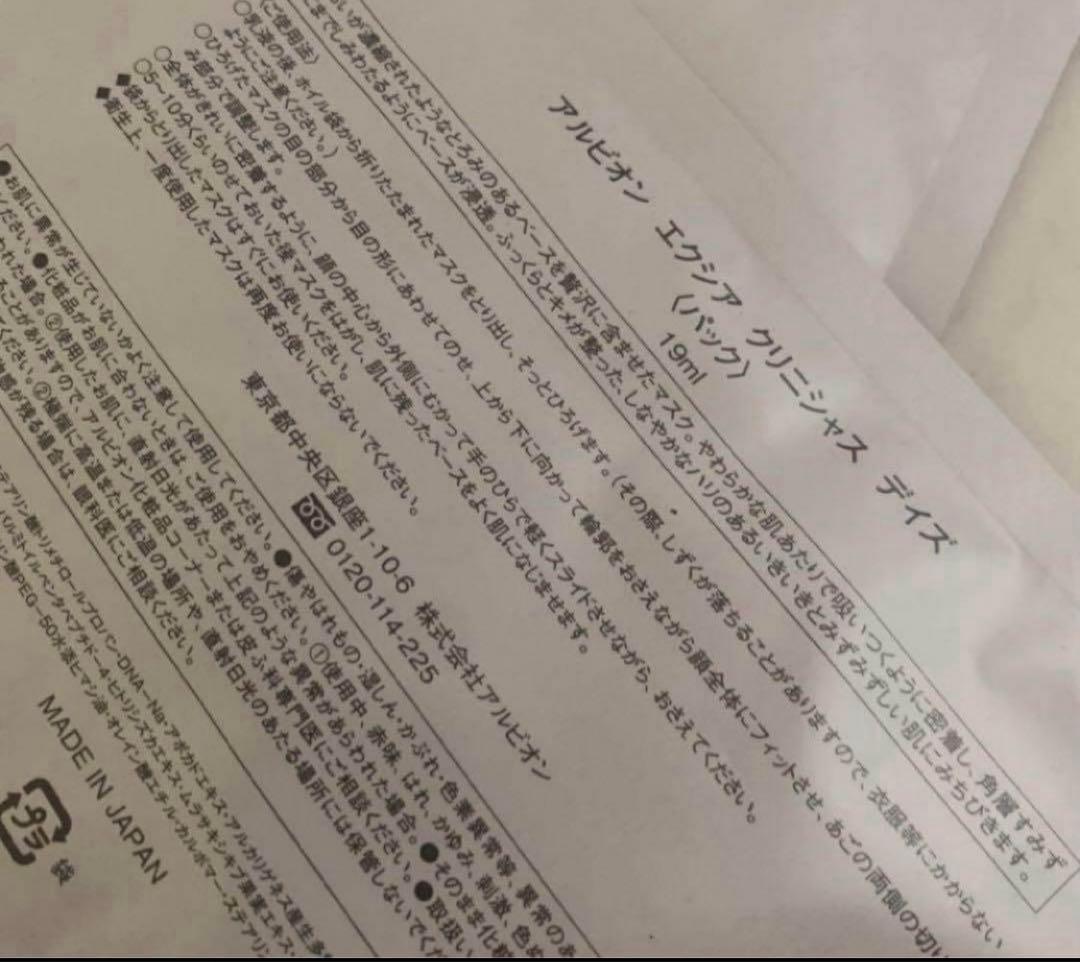 アルビオン エクシア クリニシャス デイズ
〈パック〉
19ml
いが濃縮されたようなとろみのあるベースを贅沢に含ませたマスク。やわらかな肌あたりで吸いつくように密着し、角層すみず
までしみわたるようにベースが浸透。ふっくらとキメが整った、しなやかなハリのあるいきいきとみずみずしい肌にみちびきます。
〈ご使用法〉
○乳液の後、ホイル袋から折りたたまれたマスクをとり出し、そっとひろげます。(その際、しずくが落ちることがありますので、衣服等にかからない
ようにご注意ください。)
○ひろげたマスクの目の部分から目の形にあわせてのせ、上から下に向かって輪郭をおさえながら顔全体にフィットさせ、あごの両側の切い
み部分で調整します。
○全体がきれいに密着するように、顔の中心から外側にむかって手のひらで軽くスライドさせながら、おさえてください。
○5~10分くらいのせておいた後マスクをはがし、肌に残ったベースをよく肌になじませます。
◆袋からとり出したマスクはすぐにお使いください。
◆衛生上、一度使用したマスクは再度お使いにならないでください。
東京都中央区銀座1-10-6 株式会社アルビオン
0120-114-225
●お肌に異常が生じていないかよく注意して使用してください。●傷やはれもの・湿しん・かぶれ・色素異常等、異常のあ
ださい。●化粧品がお肌に合わないときは、ご使用をおやめください。①使用中、赤味、はれ、かゆみ、刺激、色ぬ
われた場合。②使用したお肌に、直射日光があたって上記のような異常があらわれた場合。●そのまま化粧
ることがありますので、アルビオン化粧品コーナーまたは皮ふ科専門医にご相談ください。●取扱い
ください。②極端に高温または低温の場所や、直射日光のあたる場所には保管しないでくだ
感が残る場合は、眼科医にご相談ください。
ステアリン酸トリメチロールプロパン・DNA-Na・アボカドエキス・アルカリゲネス産生多
パルミトイルペンタペプチド-4・ヒトリシズカエキス・ムラサキシキブ果実エキス・
ン酸PEG-50水添ヒマシ油・オレイン酸エチル・カルボマー・ステアリン
MADE IN JAPAN
プラ
袋